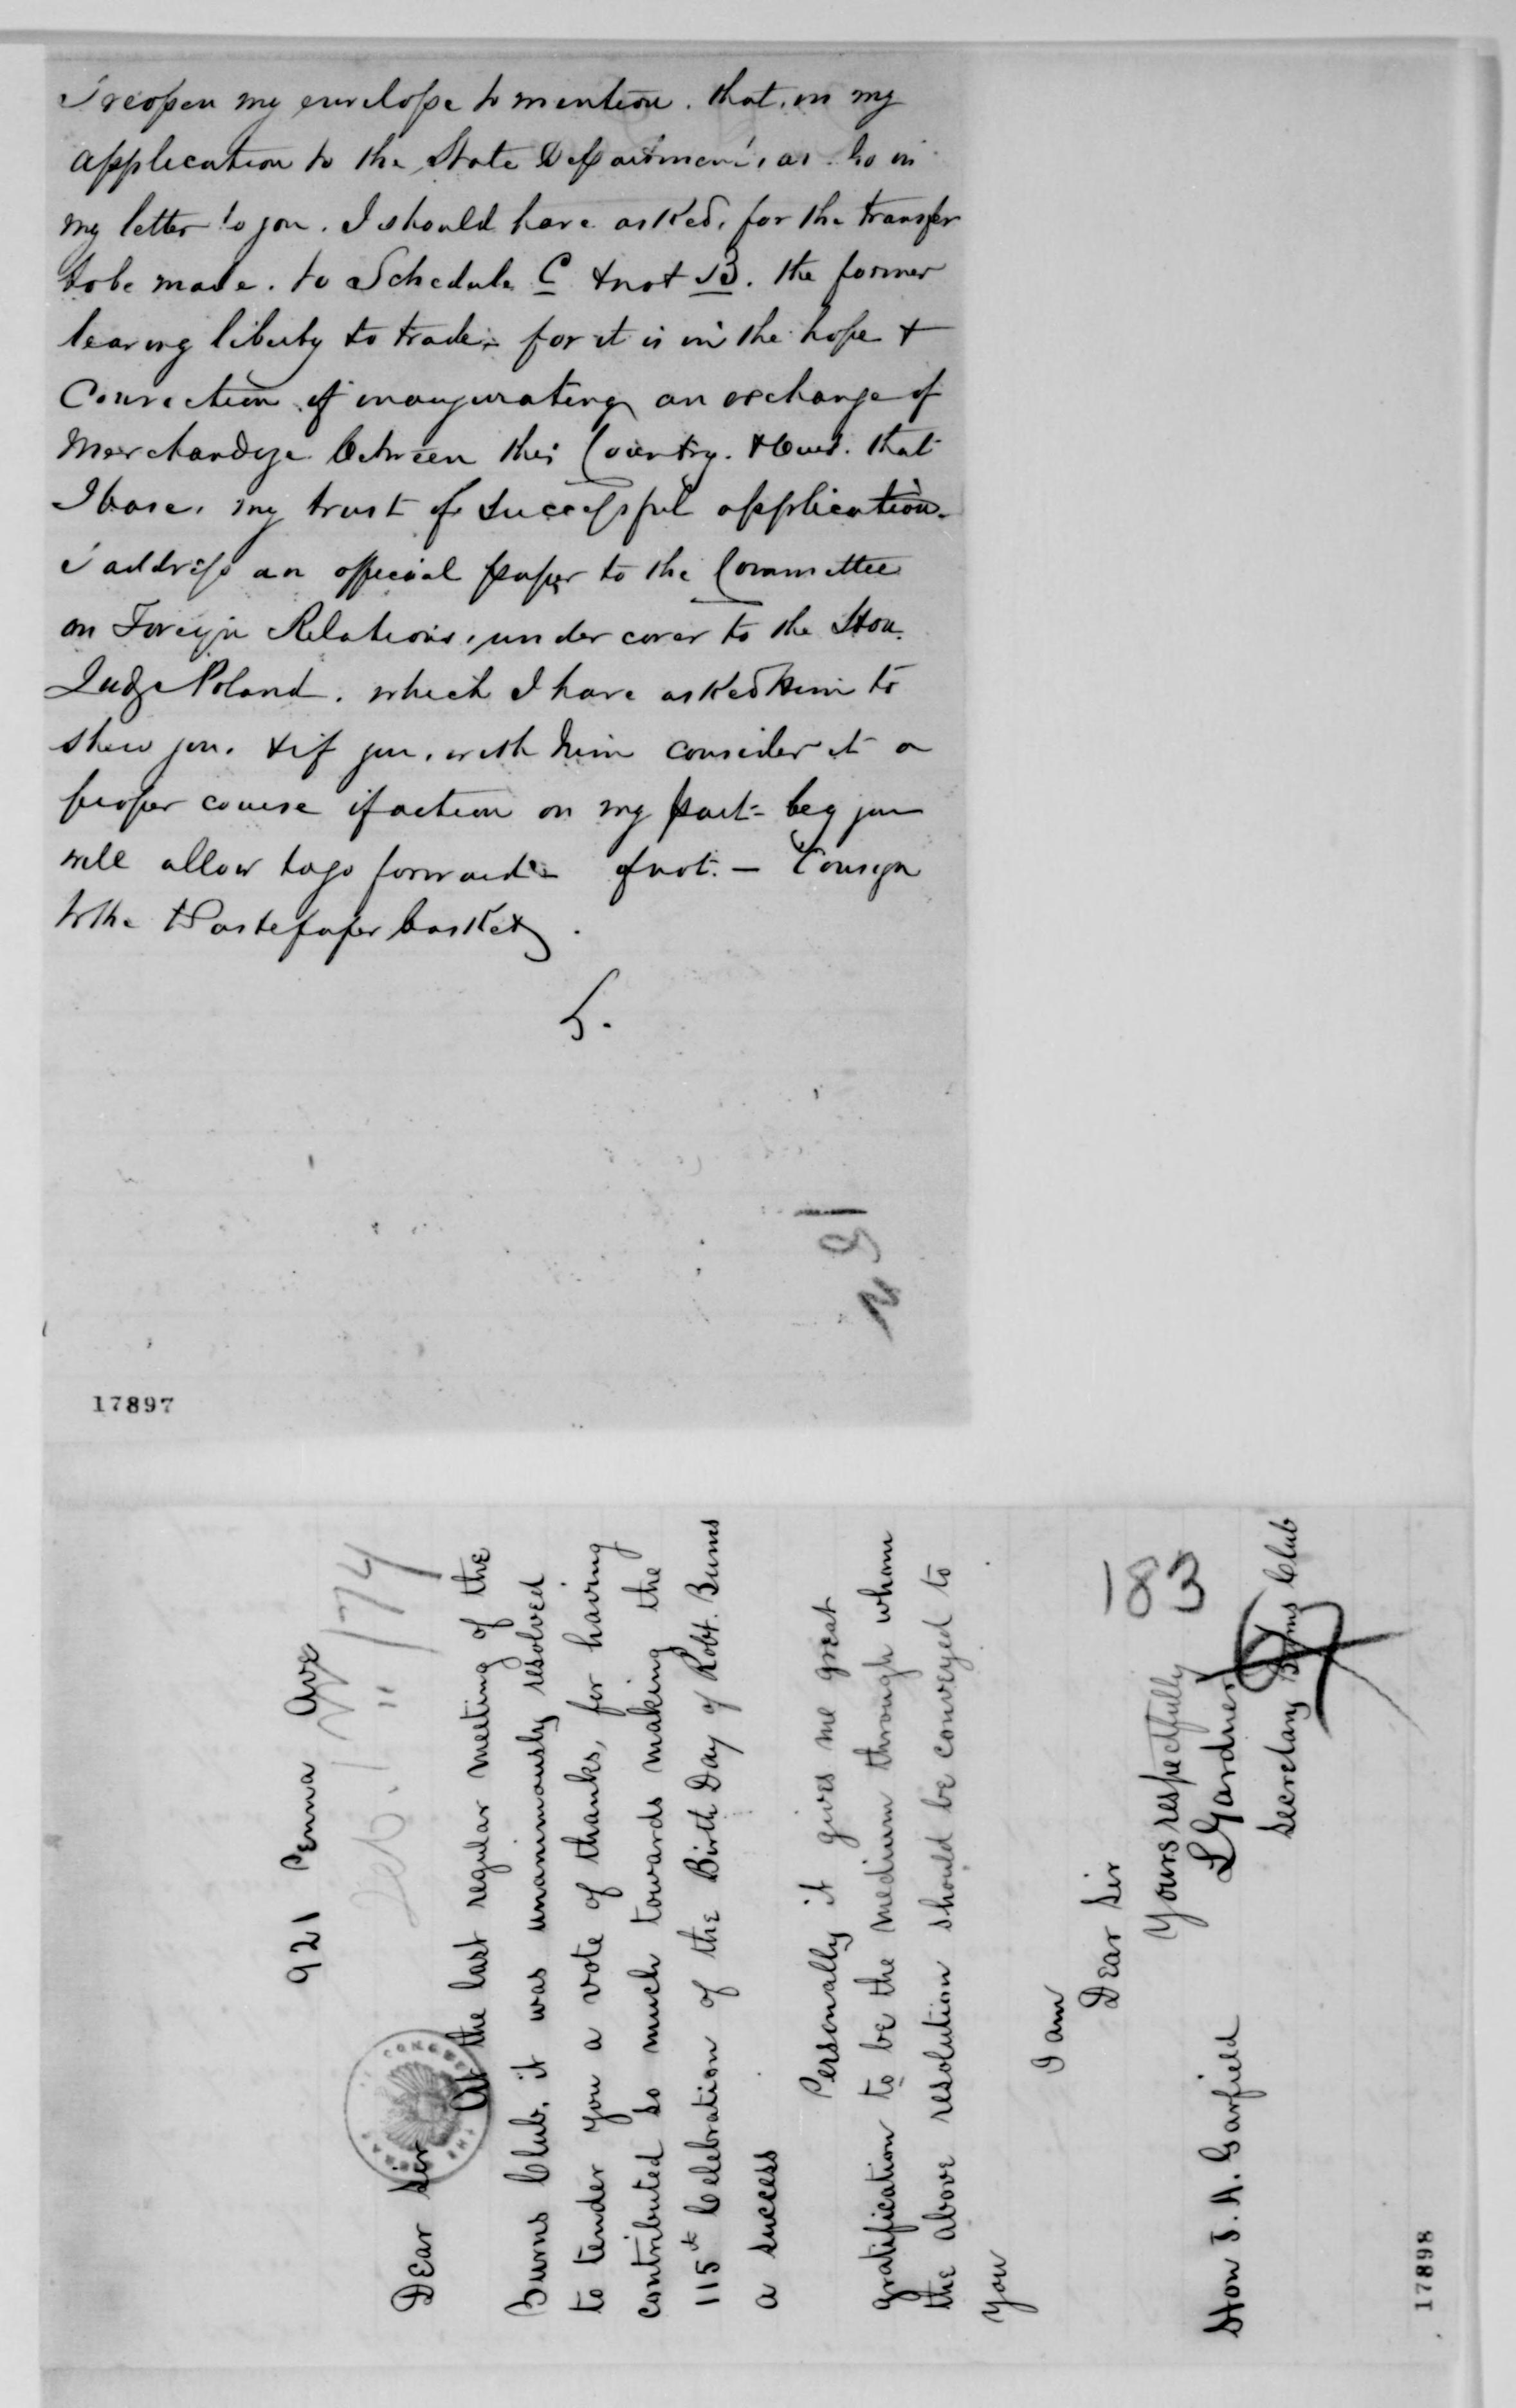 I reopen my envelope to mention. that, in my
application to the State Department, as so in
my letter to you. I should have asked, for the transfer
to be made. to Schedule C & not B. the former
leaving liberty to trade - for it is in the hope &
Conviction of inaugurating an exchange of
Merchandize between this Country. & ours. that
I base, my trust of successful application.
I address an official paper to the Committee
on Foreign Relations, under cover to the Hon.
Judge Poland. which I have asked him to
shew you. & if you, with him consider it a
proper course of action on my part - beg you
will allow to go forward - if not. - Consign
to the Wastepaper basket.
L.
17897
921 Penna Ave
Feb. 1 " / 74
Dear Sir
At the last regular meeting of the
Burns Club, it was unanimously resolved
to tender you a vote of thanks, for having
contributed so much towards making the
115th Celebration of the Birth Day of Robt. Burns
a success
Personally it gives me great
gratification to be the medium through whom
the above resolution should be conveyed to
you
I am
Dear Sir
Yours respectfully
L Gardner
Secretary Burns Club
Hon J. A. Garfield
183
17898